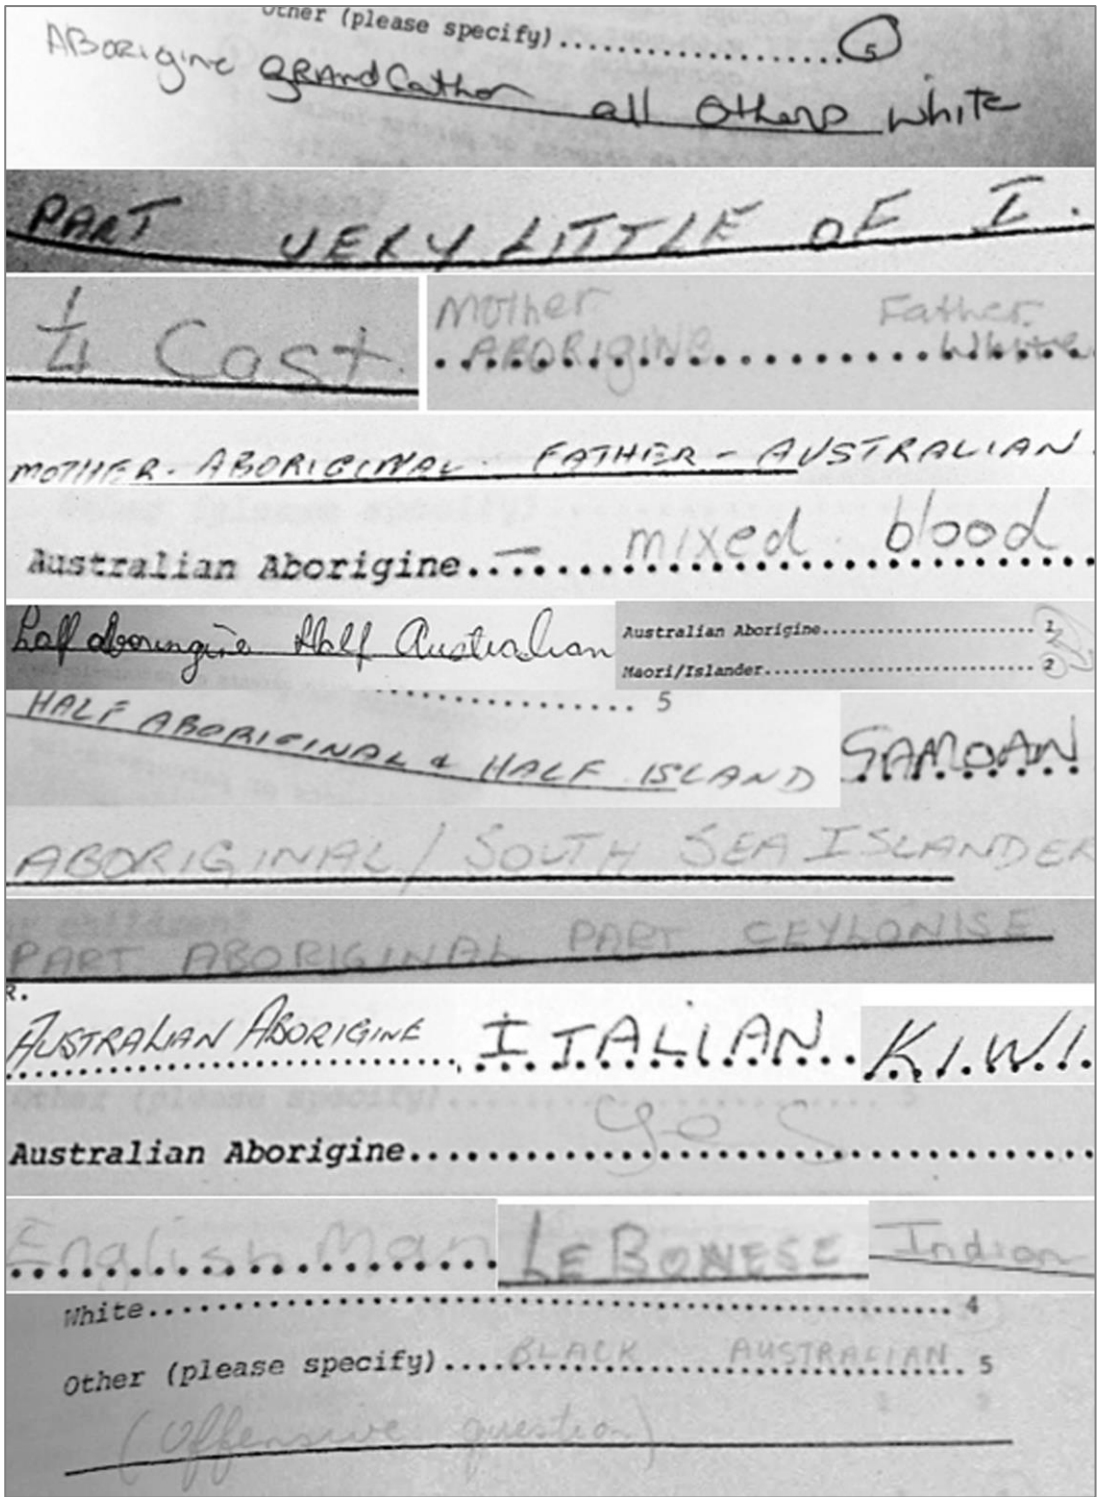 Other (please specify)..................5
ABorigine GRANdfather all others white
PART VERY LITTLE OF I.
1/4 Cast
Mother Father
ABORIGINE White
MOTHER - ABORIGINAL. FATHER - AUSTRALIAN.
Australian Aborigine... mixed blood
half aboringine Half Australian
Australian Aborigine.......................... 1
Maori/Islander................................ 2
5
HALF ABORIGINAL & HALF ISLAND
SAMOAN
ABORIGINAL / SOUTH SEA ISLANDER
PART ABORIGINAL PART CEYLONISE
R.
AUSTRALIAN ABORIGINE
ITALIAN
K.I.W.I.
Other (please specify)
Australian Aborigine.... yes
English Man
LEBONESE
Indian
White........................................ 4
Other (please specify)..... BLACK AUSTRALIAN 5
(Offensive question)